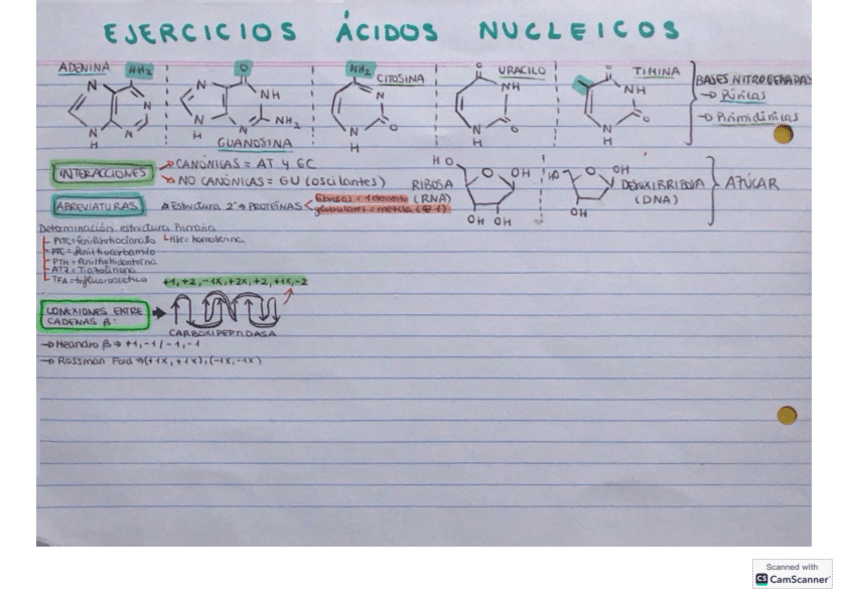 EJERCICIOS ÁCIDOS NUCLEICOS
ADENINA
NH2
N
N
N
N
H
O
N
NH
N
N
NH2
H
GUANOSINA
NH2
CITOSINA
N
N
O
H
O
URACILO
NH
N
O
H
O
TIMINA
NH
N
O
H
BASES NITROGENADAS
→ Púricas
→ Pirimidínicas
INTERACCIONES
CANÓNICAS = AT y GC
NO CANÓNICAS = GU (oscilantes)
HO
O
OH
OH OH
RIBOSA
(RNA)
HO
O
OH
OH
DESOXIRRIBOSA
(DNA)
AZÚCAR
ABREVIATURAS
Estructura 2ª → PROTEÍNAS
fibrosas = 1 elemento
globulares = mezcla
Determinación estructura Primaria
PITC = fenilisotiocianato
PTC = feniltiocarbamilo
PTH = feniltiohidantoina
ATZ = Tiazolinona
TFA = trifluoroacético
+1, +2, -1X, +2X, +2, +1X, -2
CONEXIONES ENTRE
CADENAS β:
CARBOXIPEPTIDASA
→ Meandro β → +1, -1 / -1, -1
→ Rossman Ford → (+1X, +1X), (-1X, -1X)
Scanned with
CS CamScanner